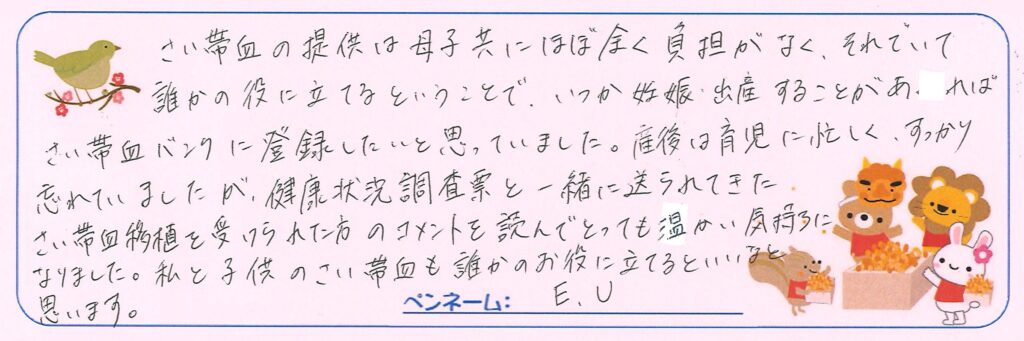 さい帯血の提供は母子共にほぼ全く負担がなく、それでいて
誰かの役に立てるということで、いつか妊娠・出産することがあ れば
さい帯血バンクに登録したいと思っていました。産後は育児に忙しく、すっかり
忘れていましたが、健康状況調査票と一緒に送られてきた
さい帯血移植を受けられた方のコメントを読んでとっても温かい気持ちに
なりました。私と子供のさい帯血も誰かのお役に立てるといいなと
思います。
ペンネーム: E.U